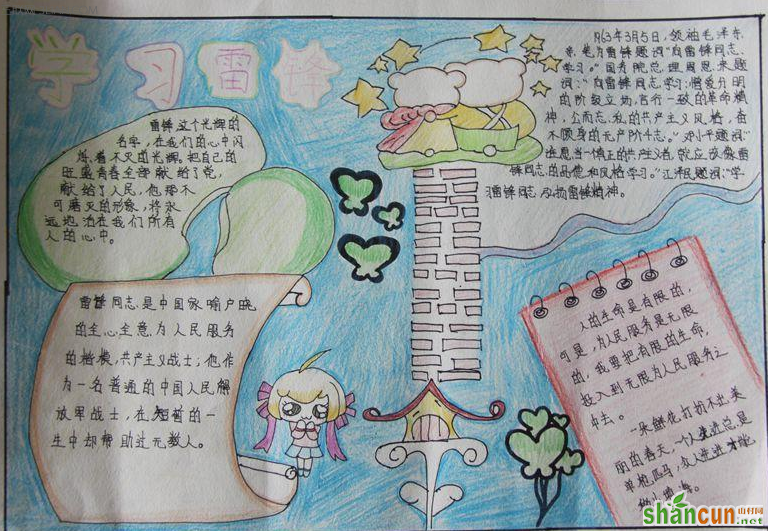 学习雷锋
雷锋这个光辉的
名字,在我们的心中闪
烁着不灭的光辉,把自己的
旺盛青春全部献给了党,
献给了人民,他那不
可磨灭的形象,将永
远地活在我们所有
人的心中。
1963年3月5日,领袖毛泽东
亲笔为雷锋题词"向雷锋同志
学习。"国务院总理周恩来题
词:"向雷锋同志学习:憎爱分明
的阶级立场,言行一致的革命精
神,公而忘私的共产主义风格,奋
不顾身的无产阶斗志。"邓小平题词:"
当一个真正的共产主义者,就应该像雷
锋同志的品德和风格学习。"江泽民题词:"学
习雷锋同志,弘扬雷锋精神。
雷锋同志是中国家喻户晓
的全心全意为人民服务
的楷模,共产主义战士;他作
为一名普通的中国人民解
放军战士,在短暂的一
生中却帮助过无数人。
人的生命是有限的,
可是,为人民服务是无限
的,我要把有限的生命,
投入到无限为人民服务之
中去。
一朵鲜花打扮不出美
丽的春天,一个人先进总是
单枪匹马,众人先进才能
shancun
山村网
.net